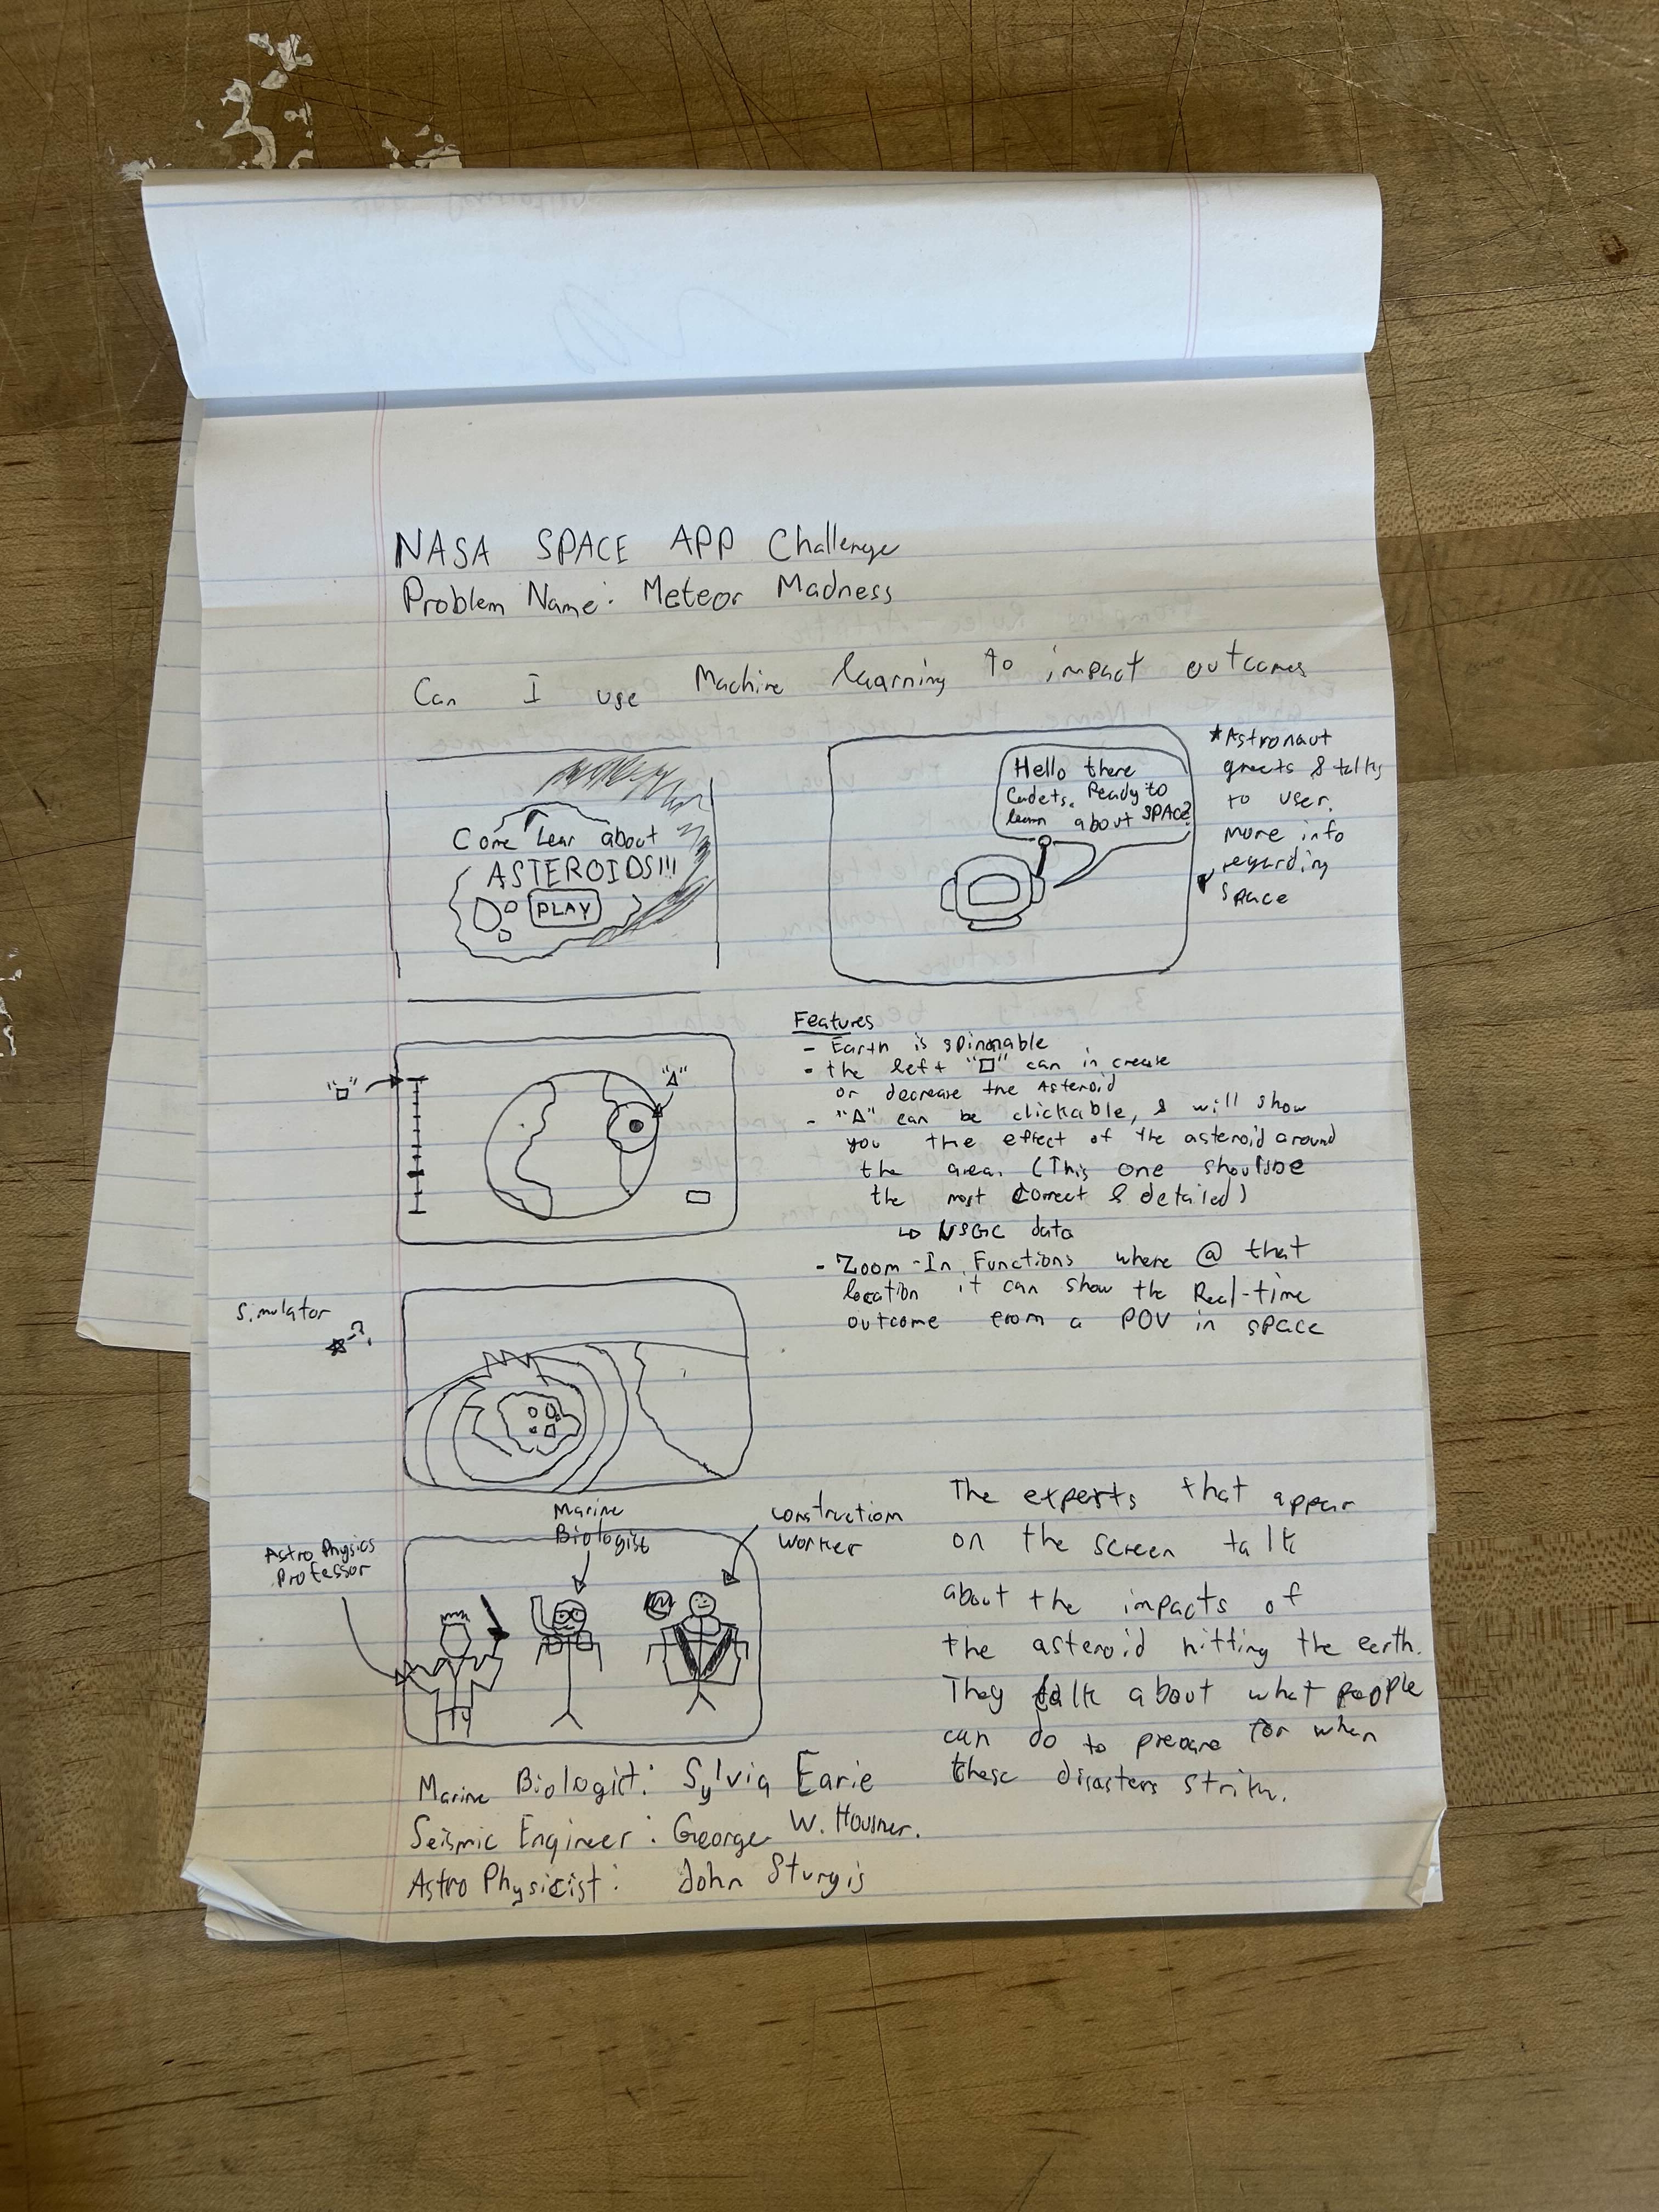 NASA SPACE APP Challenge
Problem Name: Meteor Madness
Can I use Machine learning to impact outcomes
Come Lear about
ASTEROIDS!!!
PLAY
Hello there
Cadets. Ready to
learn about SPACE?
*Astronaut
greets & talks
to user.
more info
regarding
space
"□"
"Δ"
Features
- Earth is spinnable
- the left "□" can in crease
or decrease the Asteroid
- "Δ" can be clickable, & will show
you the effect of the asteroid around
the area. (This one should be
the most correct & detailed)
↳ USGC data
- Zoom-In Functions where @ that
location it can show the Real-time
outcome from a POV in space
Simulator
☆-?
Astro Physics
Professor
Marine
Biologist
construction
worker
The experts that appear
on the screen talk
about the impacts of
the asteroid hitting the earth.
They talk about what people
can do to prepare for when
these disasters strike.
Marine Biologist: Sylvia Earie
Seismic Engineer: George W. Housner.
Astro Physicist: John Sturgis